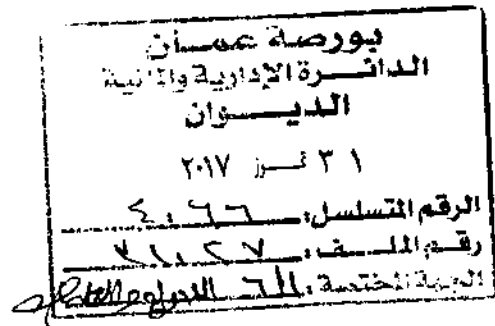 بورصة عمان
الدائرة الإدارية والمالية
الديوان
٣١ تموز ٢٠١٧
الرقم المتسلسل: ٤٠٦٦
رقم الملف: ٣١٠٢٧
الجهة المختصة: